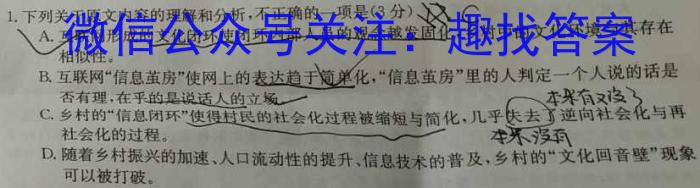 1.下列关于原文内容的理解和分析,不正确的一项是(3分)
微信公众号关注：趣找答案
A.
相似性。
B.互联网“信息茧房”使网上的表达趋于简单化,“信息茧房”里的人判定一个人说的话是
否有理,在乎的是说话人的立场。
本来有又没了
C.乡村的“信息闭环”使得村民的社会化过程被缩短与简化,几乎失去了逆向社会化与再
社会化的过程。
本来没有
D.随着乡村振兴的加速、人口流动性的提升、信息技术的普及,乡村的“文化回音壁”现象
可以被打破。